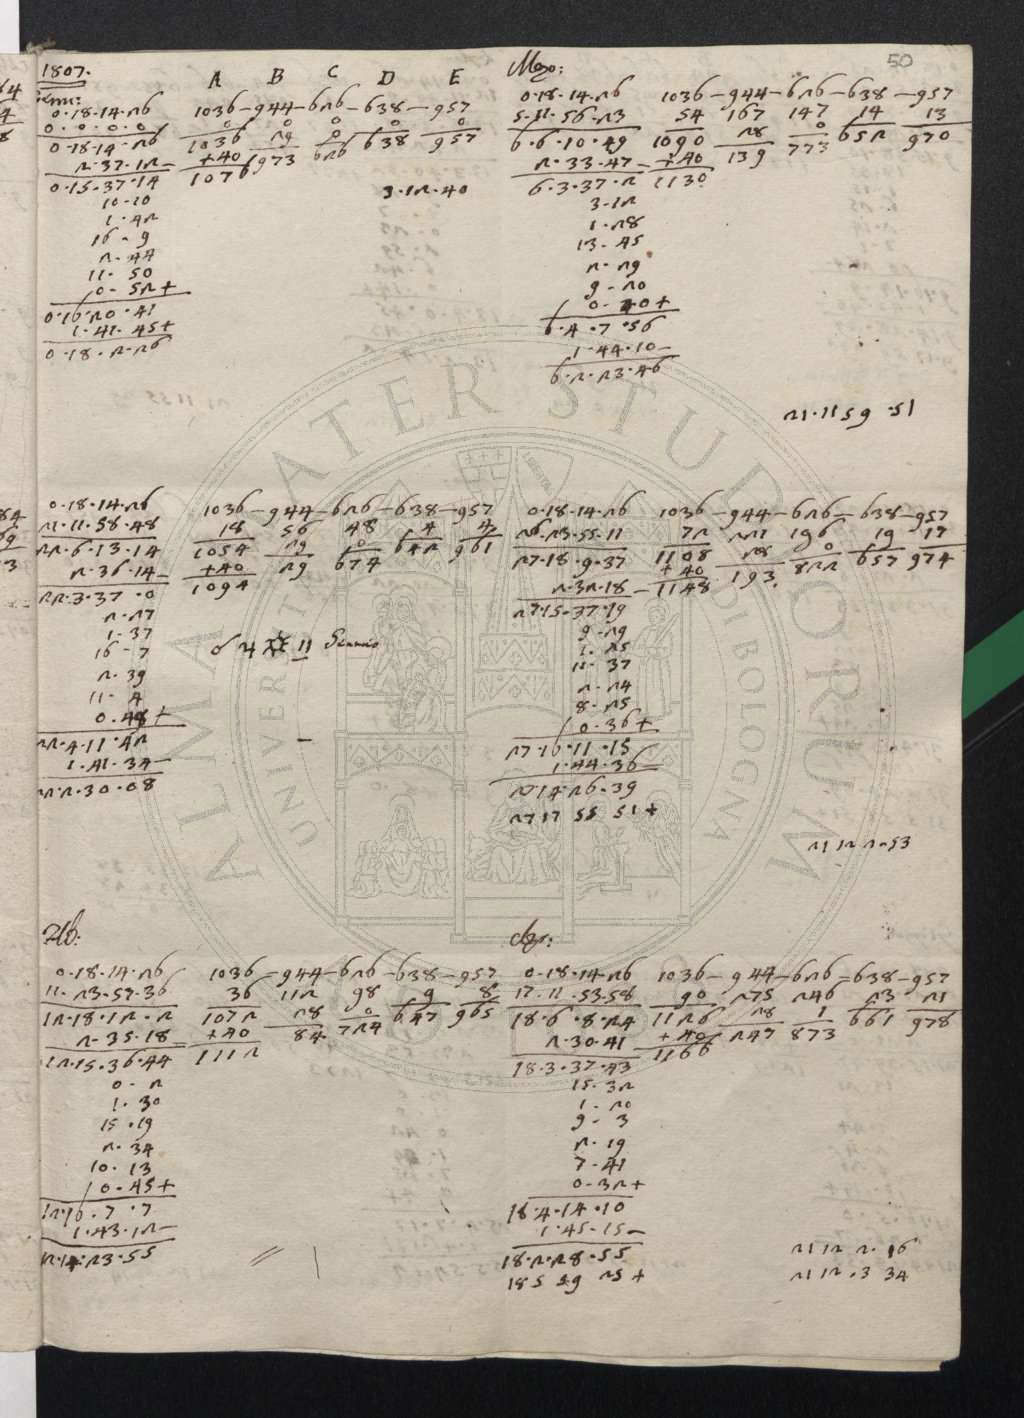 50
1807.
A B C D E
0·18·14·26 1036–944–626–638–957
0·0·0·0 0 0 0 0
0·18·14·26 1036 29 0 638 957
2·37·12– +40 973 626
0·15·37·14 1076
3·12·40
10·10
1·42
16·9
2·44
11·50
0·52+
0·16·20·41
1·41·45+
0·18·2·26
0·18·14·26 1036–944–626–638–957
5·11·56·23 54 167 147 14 13
6·6·10·49 1090 28 0 652 970
2·33·47– +40 139 773
6·3·37·2 1130
3·12
1·28
13·45
2·29
9·20
0·40+
6·4·7·56
1·44·10–
6·2·23·46
21·11 59·51
0·18·14·26 1036–944–626–638–957
21·11·58·48 18 56 48 4 4
22·6·13·14 1054 29 0 642 961
2·36·14– +40 29 674
22·3·37·0 1094
2·27
1·37
16·7
2·39
11·4
0·48+
22·4·11·42
1·41·34–
22·2·30·08
☌ ♃ ☼ 11
0·18·14·26 1036–944–626–638–957
26·23·55·11 72 221 196 19 17
27·18·9·37 1108 28 0 657 974
2·32·18– +40 193 822
27·15·37·19 1148
9·29
1·25
11·37
2·24
8·25
0·36+
27·16·11·15
1·44·36–
27·14·26·39
27 17 55 51+
21 12 2·53
0·18·14·26 1036–944–626–638–957
11·23·57·36 36 112 98 9 8
12·18·12·2 1072 28 0 647 965
2·35·18– +40 84 724
12·15·36·44 1112
0·2
1·30
15·19
2·34
10·13
0·45+
12·16·7·7
1·43·12–
12·14·23·55
0·18·14·26 1036–944–626–638–957
17·11·53·58 90 275 246 23 21
18·6·8·24 1126 28 1 661 978
2·30·41 +40 247 873
18·3·37·43 1166
15·32
1·20
9·3
2·19
7·41
0·32+
18·4·14·10
1·45·15–
18·2·28·55
18 5 59 25+
21 12 2·16
21 12·3 34
ALMA MATER STUDIORUM
UNIVERSITÀ DI BOLOGNA